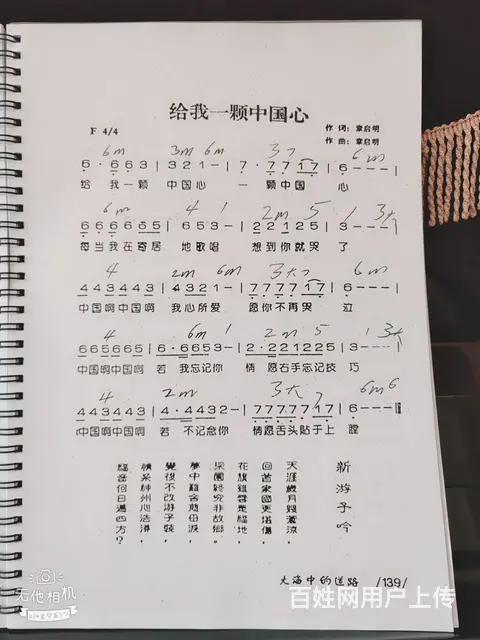 给我一颗中国心
F 4/4
作 词: 章启明
作 曲: 章启明
6m 3m 6m 3 7 6m
6 · 6 6 3 | 3 2 1 - | 7 · 7 7 1 7 | 6 - - - |
给 我一颗 中国心 一 颗中国 心
6m 4 1 2m 5 1 3大7
6 6 6 6 5 5 | 6 5 3 - | 2 2 1 2 5 | 3 - - - |
每当我在寄居 地歌唱 想到你就哭 了
4 2m 6m 3大7 6m
4 4 3 4 4 3 | 4 3 2 1 - | 7 7 7 7 1 7 | 6 - - - |
中国啊中国啊 我心所爱 愿你不再哭 泣
4 6m 1 2m 5 1 3大
6 6 5 6 6 5 | 6 · 6 6 5 3 - | 2 · 2 2 1 2 2 5 | 3 - - - |
中国啊中国啊 若 我忘记你 情 愿右手忘记技 巧
4 2m 3大7 6m6
4 4 3 4 4 3 | 4 · 4 4 3 2 - | 7 7 7 7 7 1 7 | 6 - - -
中国啊中国啊 若 不记念你 情愿舌头贴于上 膛
新 游 子 吟
天涯歲月
回首家園更堪傷
花旗雖是福地
梁園終非故鄉
夢中
覺後不改游子
神州心浩
福音何日遇四方?
大海中的道路 /139/
无他相机
百姓网用户上传